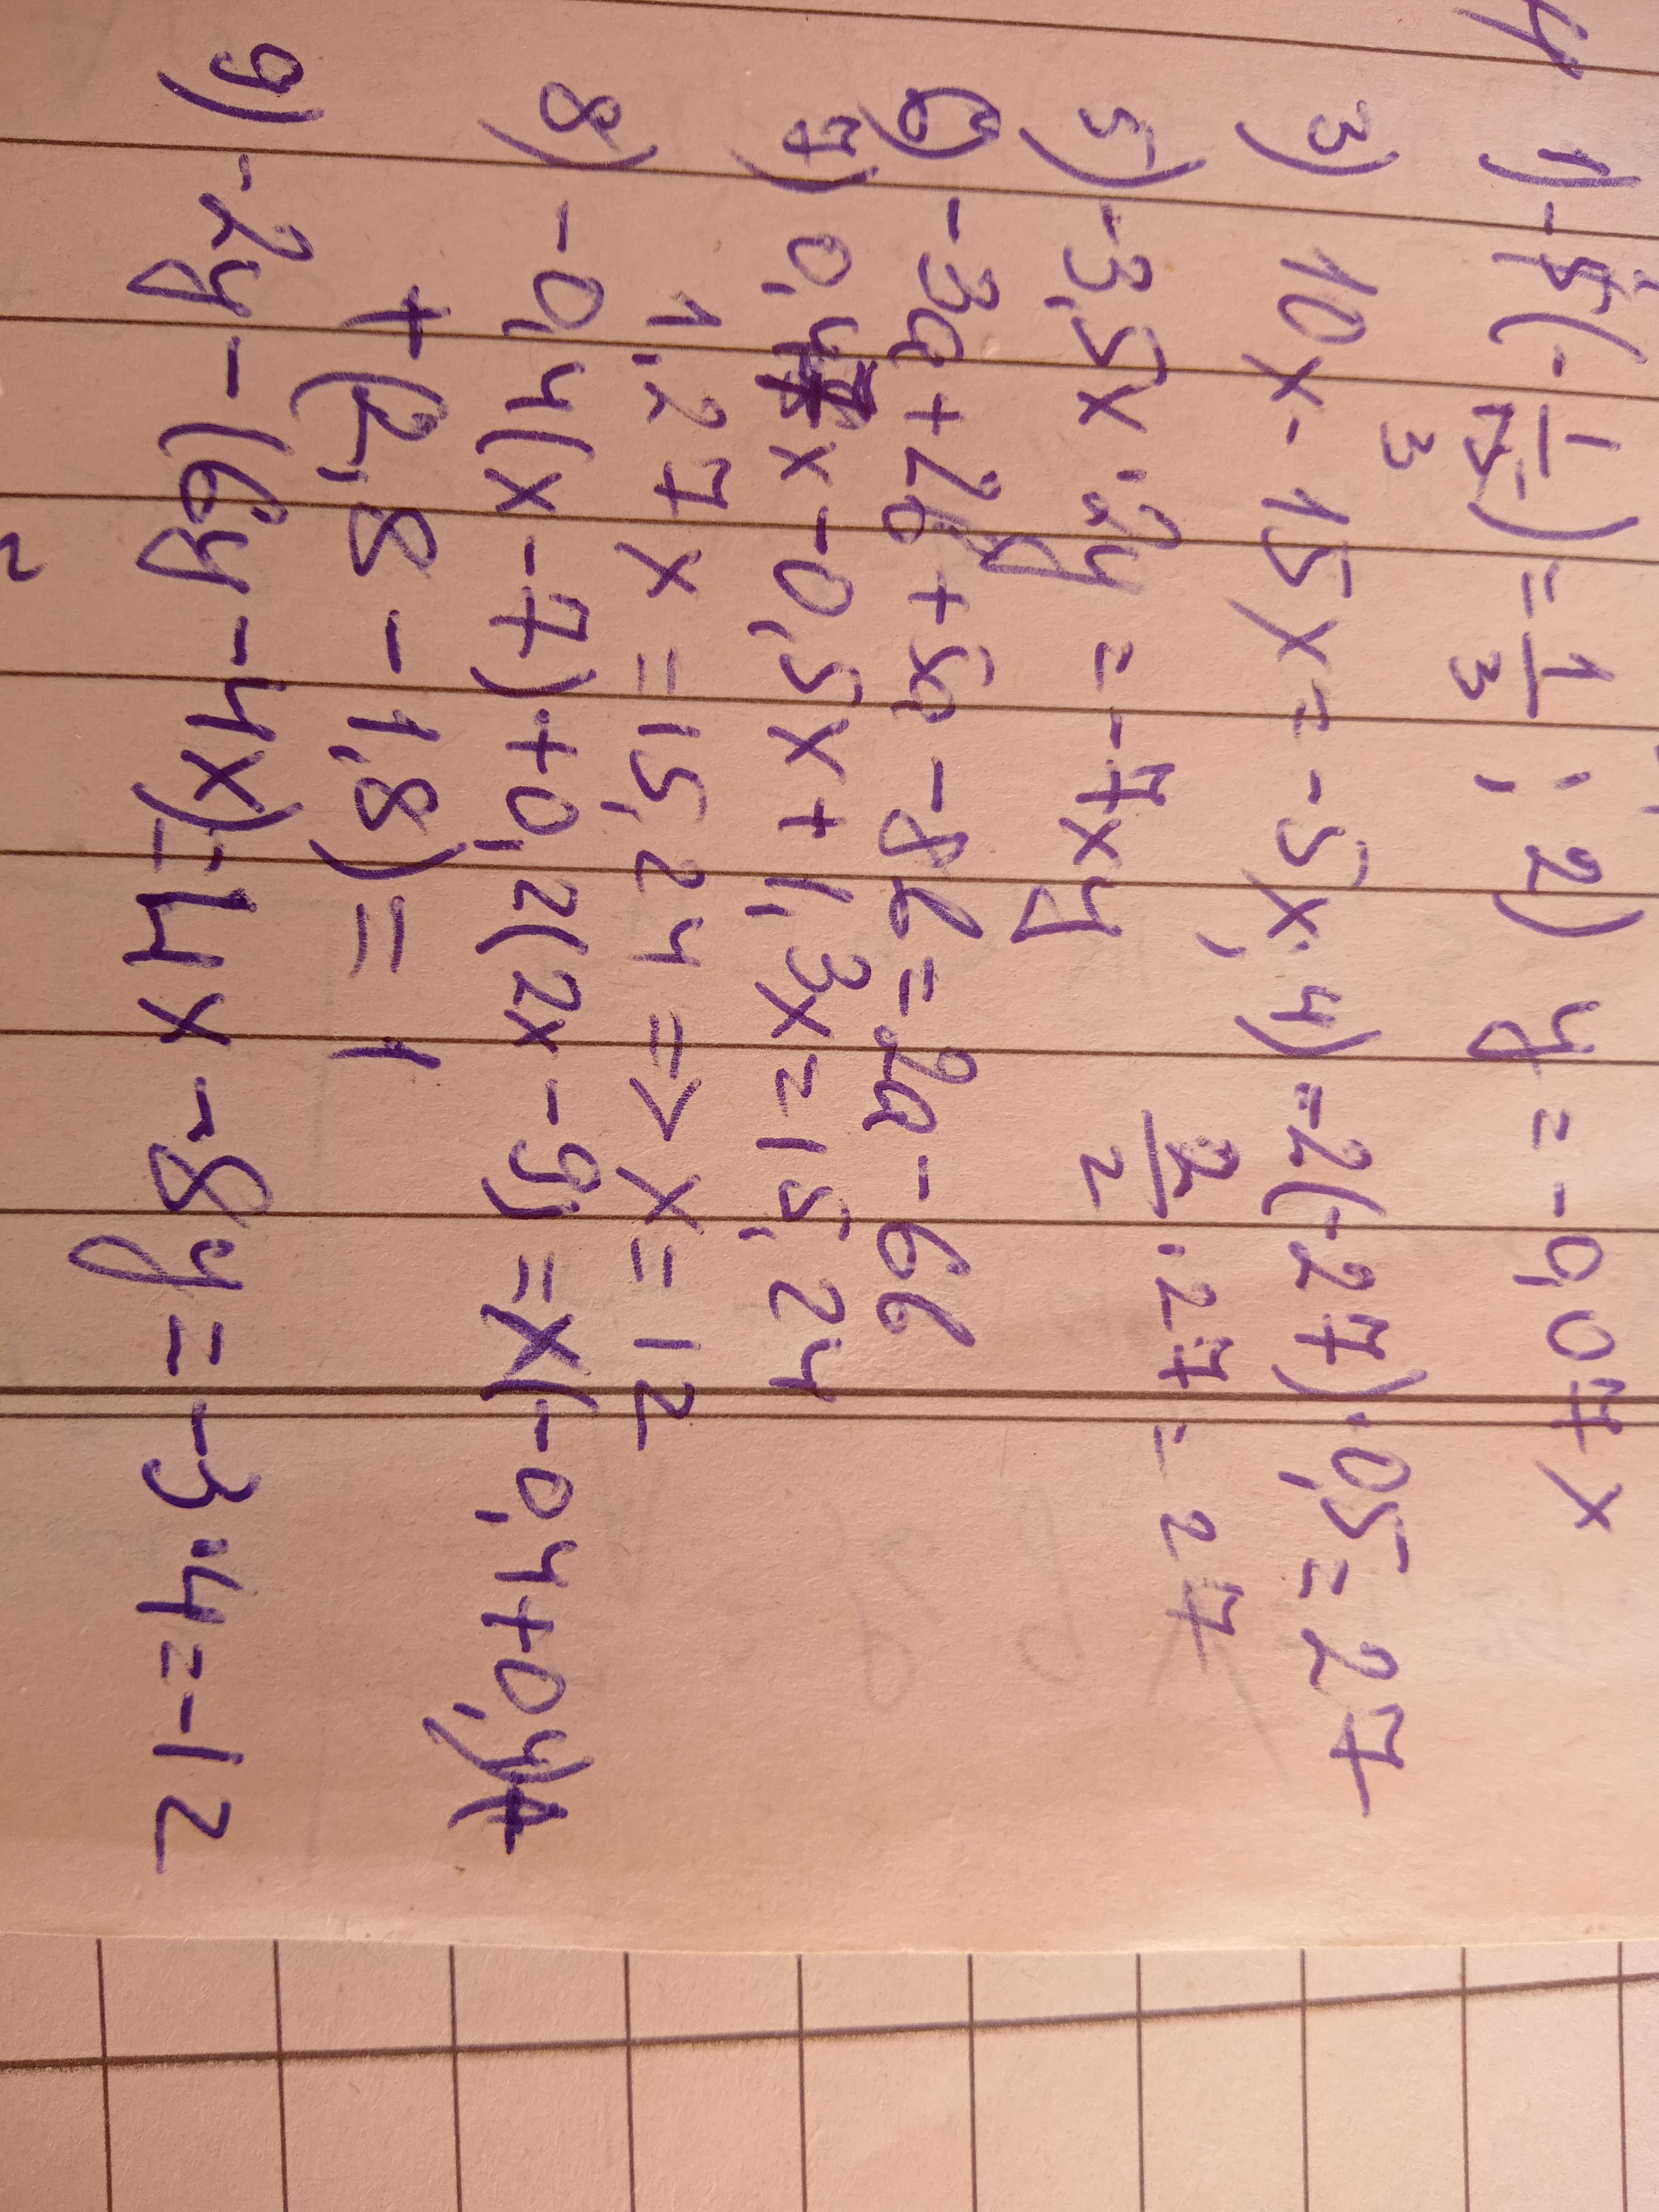 1) -5(-1/15) = 1/3; 2) y = -0,07x
3
3) 10x - 15x = -5x; 4) -2(-27)·0,5 = 27
2/2 · 27 = 27
5) -3,5x · 2y = -7xy
6) -3a + 2b + 5a - 8b = 2a - 6b
7) 0,4x - 0,5x + 1,3x = 15,24
1,27x = 15,24 => x = 12
8) -0,4(x - 7) + 0,2(2x - 9) = x(-0,4 + 0,4) +
+ (2,8 - 1,8) = 1
9) -2y - (6y - 4x) = 4x - 8y = -3·4 = -12